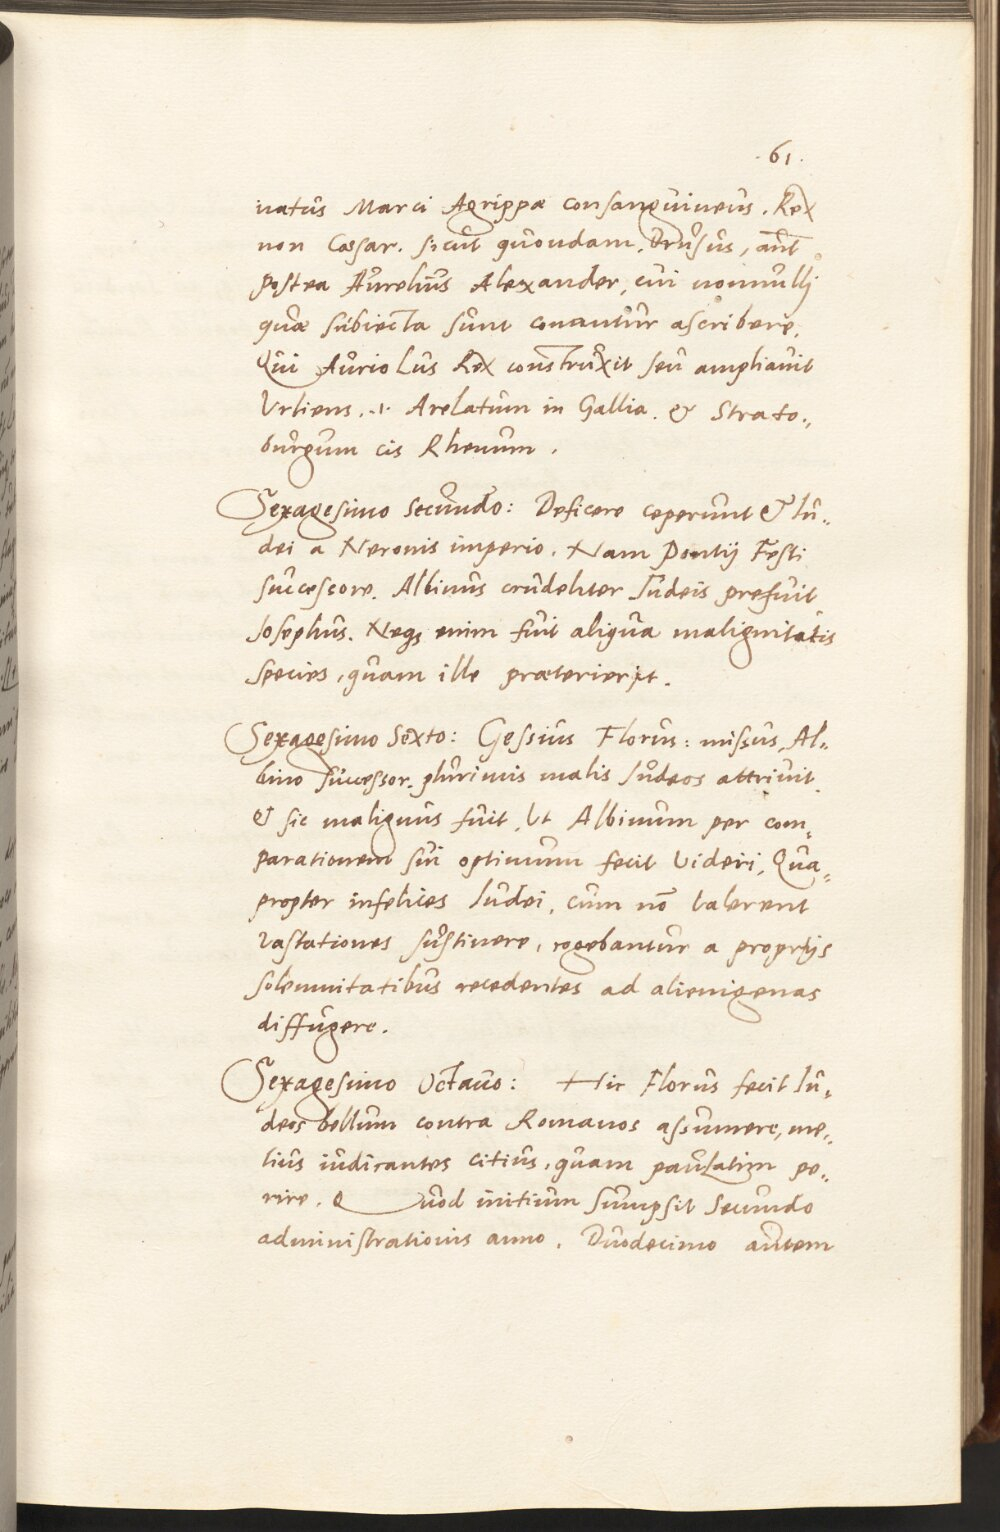 .61.
natus Marci Agrippæ consanguineus. Rex
non Cæsar. sicut quondam. Drusus, aut
postea Aurelius Alexander, cui nonnulli
quæ subiecta sunt conantur ascribere.
Qui Auriolus Rex construxit seu ampliauit
.1. Arelatum in Gallia. & Strato=
burgum cis Rhenum.
Sexagesimo secundo: Deficere ceperunt & Iu=
dei a Neronis imperio. Nam Pontij Festi
successore. Albinus crudeliter Iudeis prefuit
Iosephus. Neq3 enim fuit aliqua malignitatis
species, quam ille præterierit.
Sexagesimo Sexto: Gessius Florus: missus, Al=
bino successor. plurimis malis Iudeos attriuit.
& sic malignus fuit, Vt Albinum per com=
parationem sui optimum fecit Videri, Qua=
propter infelices Iudei, cum nō Valerent
Vastationes sustinere, cogebantur a proprijs
solemnitatibus recedentes ad alienigenas
diffugere.
Sexagesimo Octauo: Hic Florus fecit Iu=
deos bellum contra Romanos assumere, me=
lius iudicantes citius, quam paulatim pe=
rire. Quod initium sumpsit Secundo
administrationis anno. Duodecimo autem